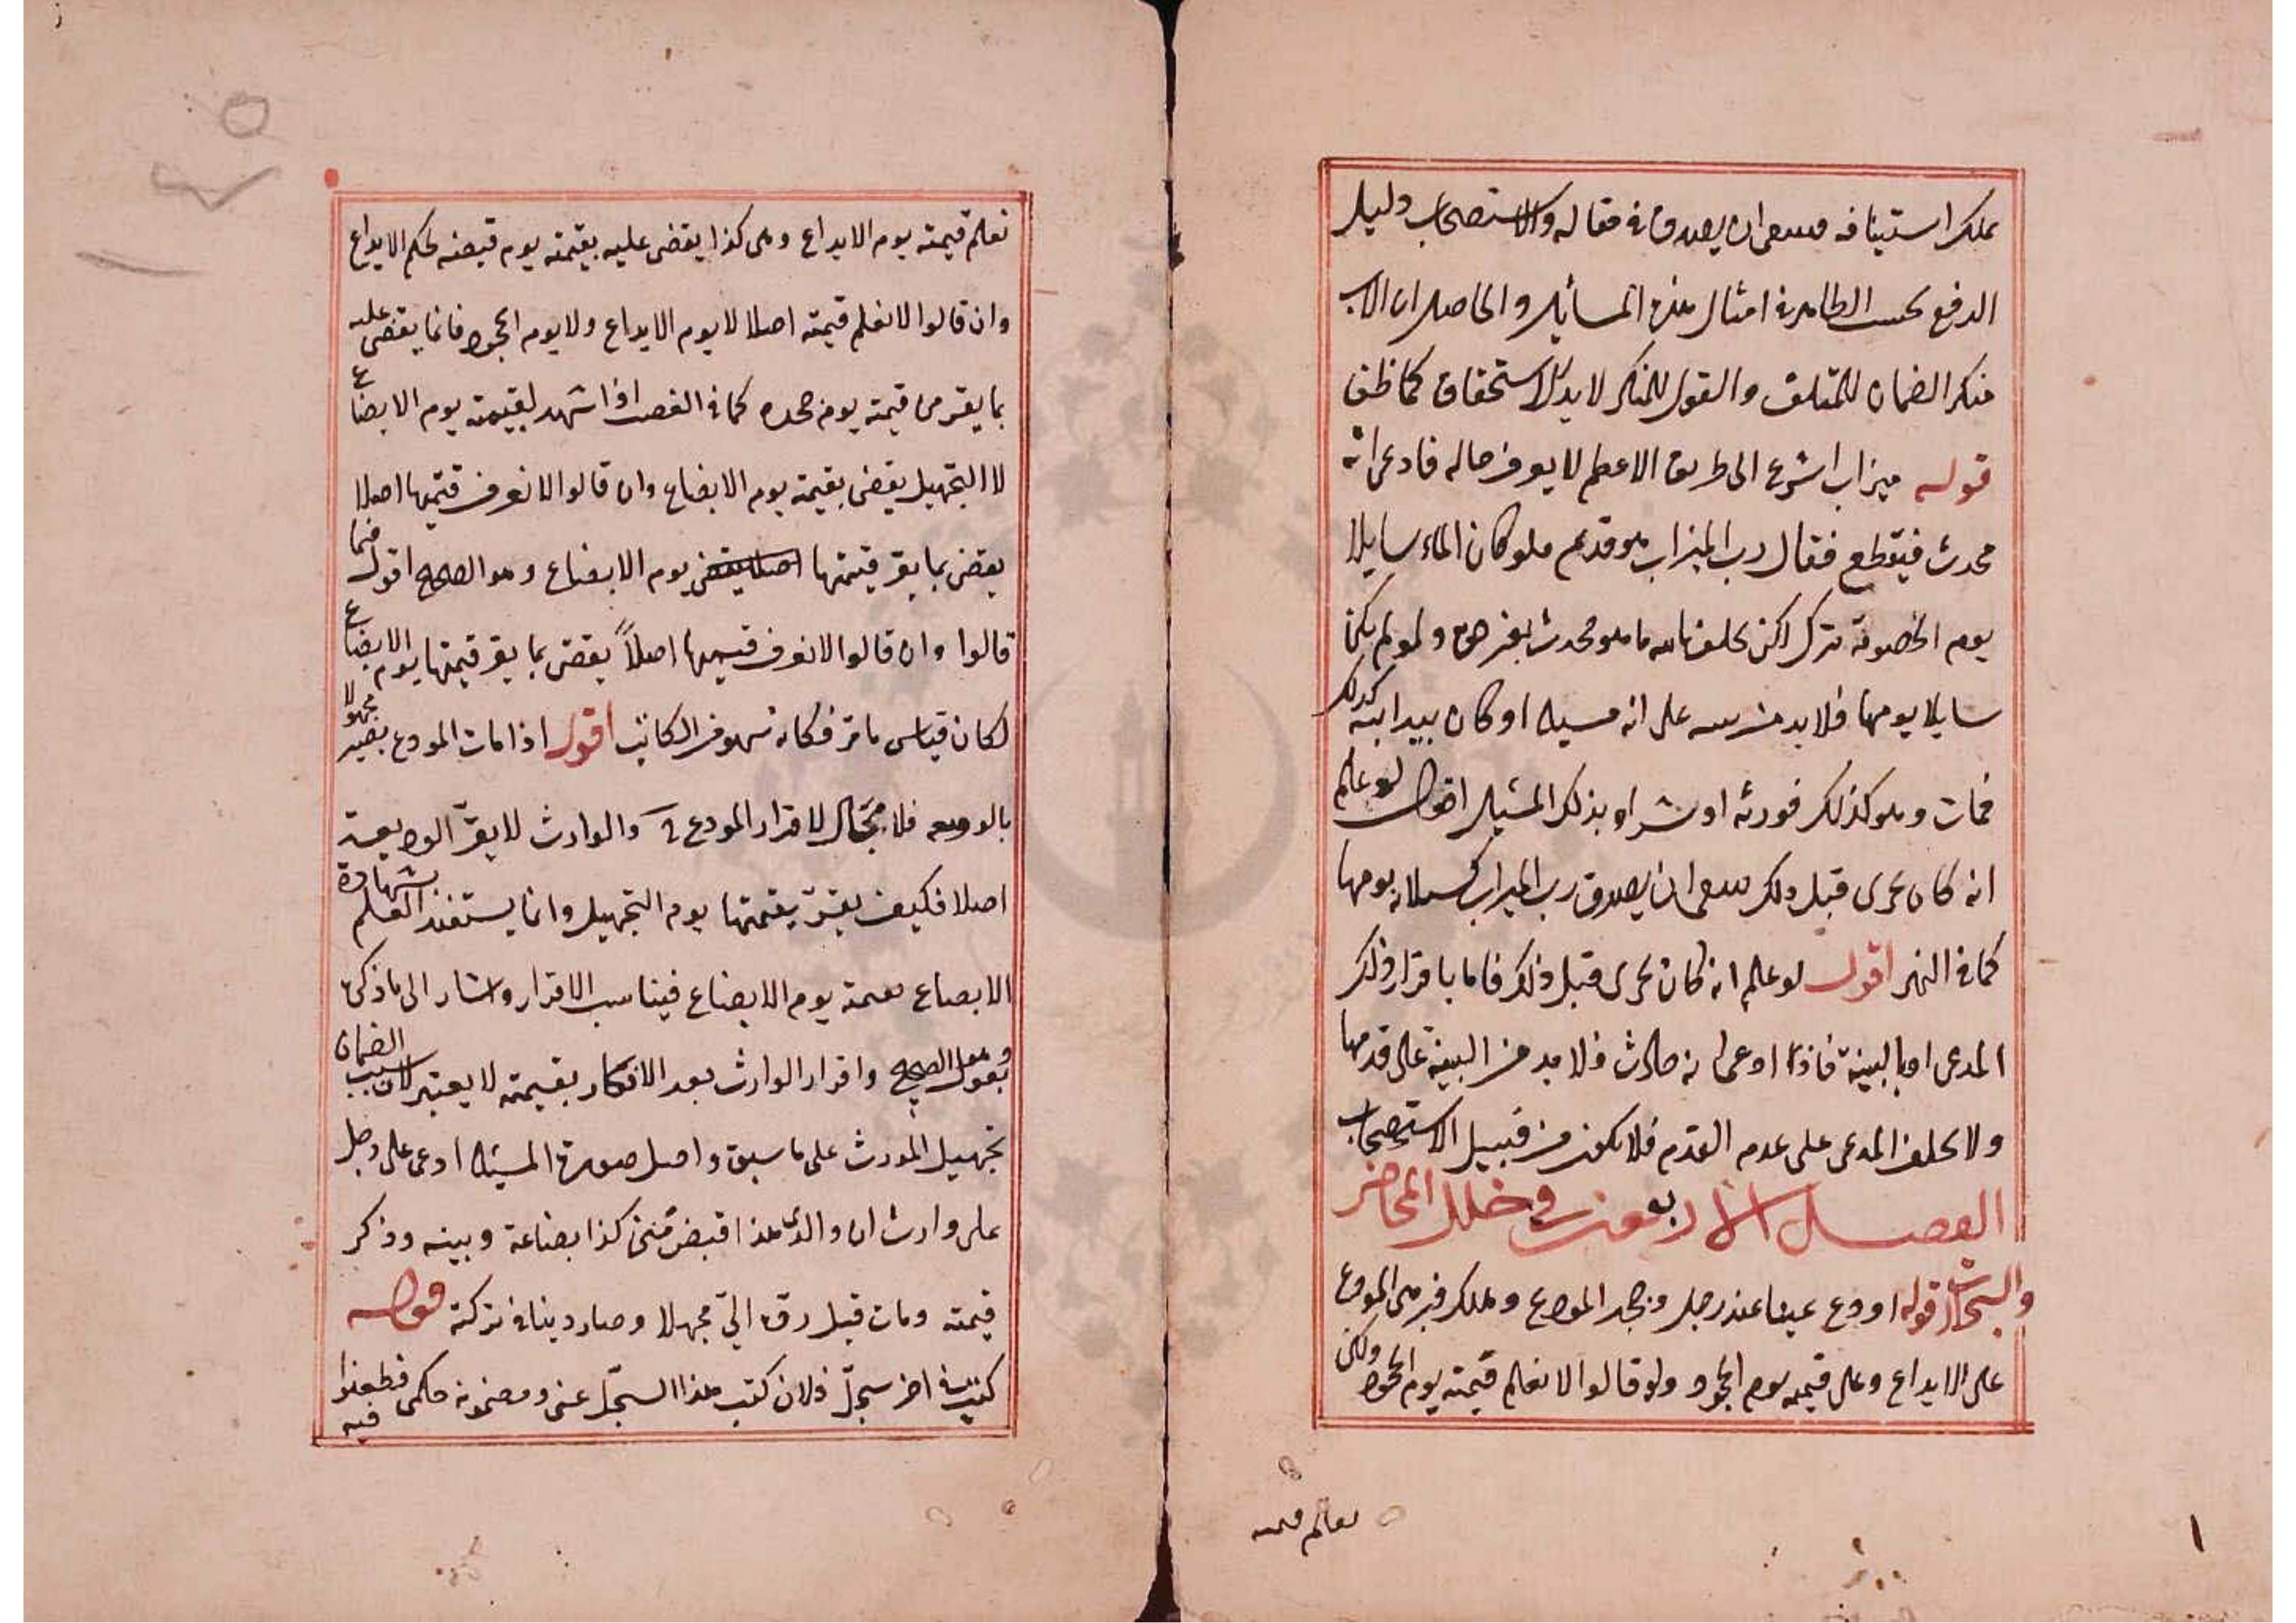 يملك استينافه فينبغى ان يصدق فى مقاله والاستصحاب دليل
الدفع بحسب الظاهر فى امثال هذه المسائل والحاصل ان الاب
منكر الضمان للمتلف والقول للمنكر لا يدل الاستحقاق كما ظن
قوله ميزاب اشرع الى طريق الاعظم لا يعرف حاله فادعى انه
محدث فيقطع فقال رب الميزاب هو قديم فلو كان الماء سايلا
يوم الخصومة يترك لكن يحلف بالله ما هو محدث بغير حق ولو لم يكن
سايلا يومها فلا بد من بينة على انه مسيله او كان بيد ابيه كذلك
فمات وهو كذلك فورثه او شراه بذلك المسيل اقول لو علم
انه كان يجرى قبل ذلك ينبغى ان يصدق رب الميزاب يومها
كما فى النهر اقول لو علم انه كان يجرى قبل ذلك فاما باقرار ذلك
المدعى او بالبينة فاذا ادعى انه حادث فلا بد من البينة على قدمها
ولا يحلف المدعى على عدم القدم فلا يكون من قبيل الاستصحاب
الفصل الاربعون فى خلل المحاضر
والسجلات قوله اودع عينا عند رجل وجحد المودع وهلك فبرهن المودع
على الايداع وعلى قيمته يوم الجحود ولو قالوا لا نعلم قيمته يوم الجحود ولكن
نعلم قيمته
نعلم قيمته يوم الايداع وهى كذا يقضى عليه بقيمته يوم قبضه بحكم الايداع
وان قالوا لا نعلم قيمته اصلا لا يوم الايداع ولا يوم الجحود فانما يقضى عليه
بما يقر من قيمته يوم جحده كما فى الغصب اذا شهد بقيمته يوم الابضاع
لا التجهيل يقضى بقيمته يوم الابضاع وان قالوا لا نعرف قيمتها اصلا
يقضى بما يقر قيمتها اصلا يقضى يوم الابضاع وهو الصحيح اقول فما
قالوا وان قالوا لا نعرف قيمتها اصلاً يقضى بما يقر قيمتها يوم الابضاع
لكان قياس ما مر فكانه سهو من الكاتب اقول اذا مات المودع بصير مجهولا
بالوديعة فلا مجال لاقرار المودع والوارث لا يقر الوديعة
اصلا فكيف يقر بقيمتها يوم التجهيل وانما يستفيد العلم بشهادة
الابضاع بقيمته يوم الابضاع فيناسب الاقرار واشار الى ما ذكر
بقوله وهو الصحيح واقرار الوارث بعد الانكار بقيمته لا يعتبر لان سبب الضمان
تجهيل المورث على ما سبق واصل صورة المسئلة ادعى على رجل
على وارث ان والدى هذا قبض منى كذا بضاعة وبينه وذكر
قيمته ومات قبل رده الىّ مجهلا وصار دينا فى تركته قوله
كتب فى اخر سجلّ فلان كتب هذا السجلّ عنى ومضمونه حكمى فطعنوا
فيه